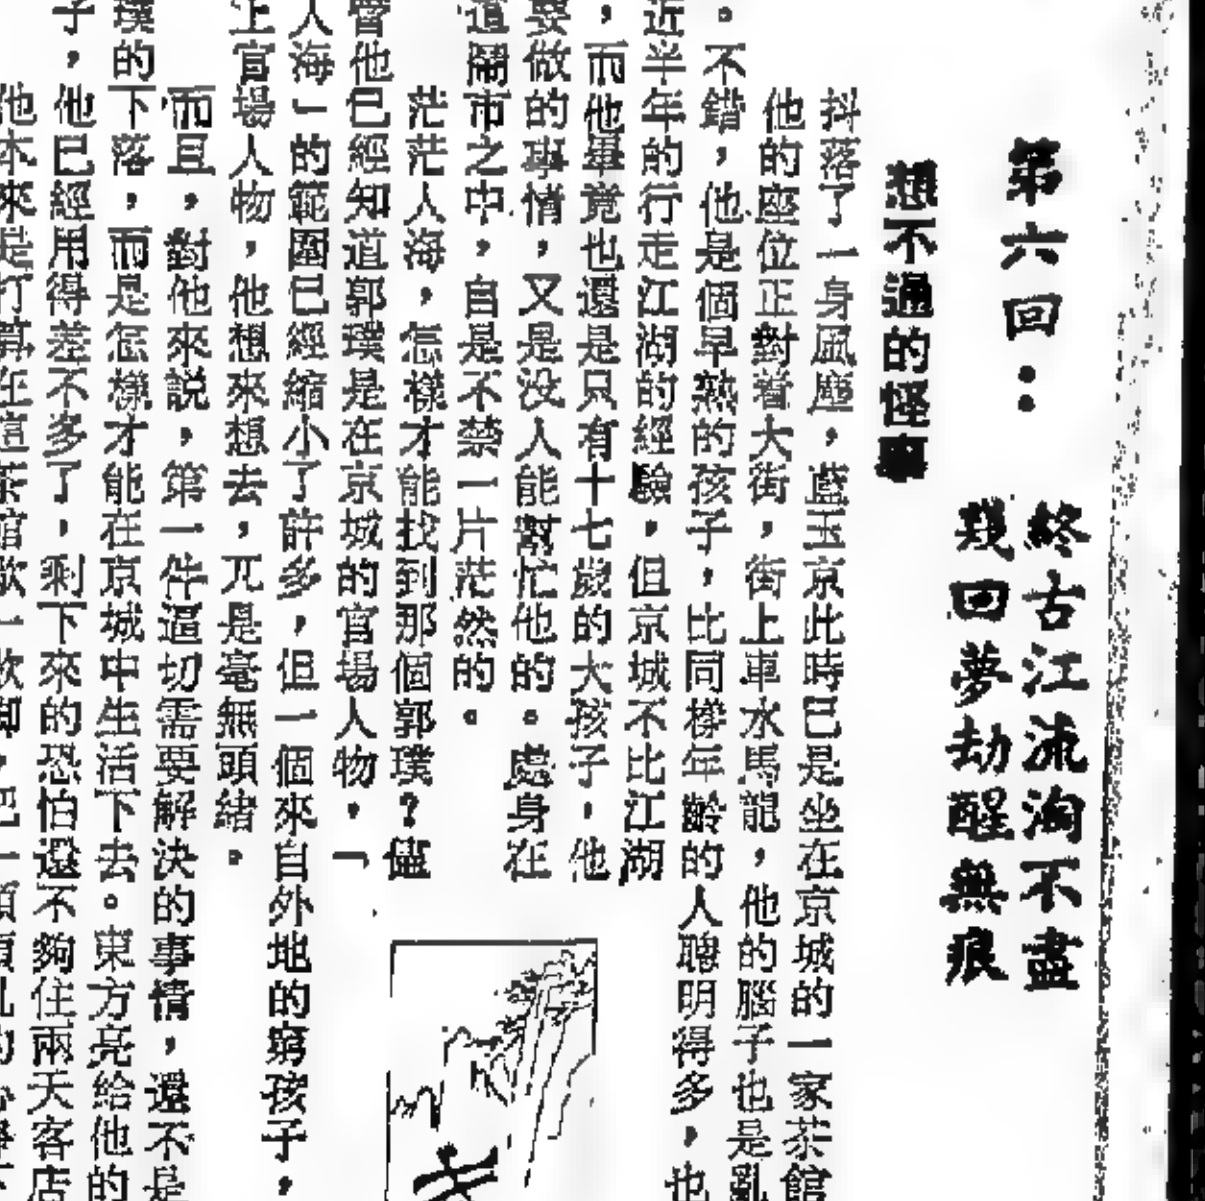 第六回：
終古江流淘不盡
殘回夢劫醒無痕
想不通的怪事
抖落了一身風塵，藍玉京此時已是坐在京城的一家茶館
他的座位正對着大街，街上車水馬龍，他的腦子也是亂
。不錯，他是個早熟的孩子，比同樣年齡的人聰明得多，也
近半年的行走江湖的經驗，但京城不比江湖
，而他畢竟也還是只有十七歲的大孩子，他
要做的事情，又是没人能幫忙他的。處身在
這鬧市之中，自是不禁一片茫然的。
茫茫人海，怎樣才能找到那個郭璞？儘
管他已經知道郭璞是在京城的官場人物，「
人海」的範圍已經縮小了許多，但一個來自外地的窮孩子，
上官場人物，他想來想去，兀是毫無頭緒。
而且，對他來説，第一件逼切需要解決的事情，還不是
璞的下落，而是怎樣才能在京城中生活下去。東方亮給他的
子，他已經用得差不多了，剩下來的恐怕還不夠住兩天客店
他本來是打算在這茶館歇一歇脚，把一